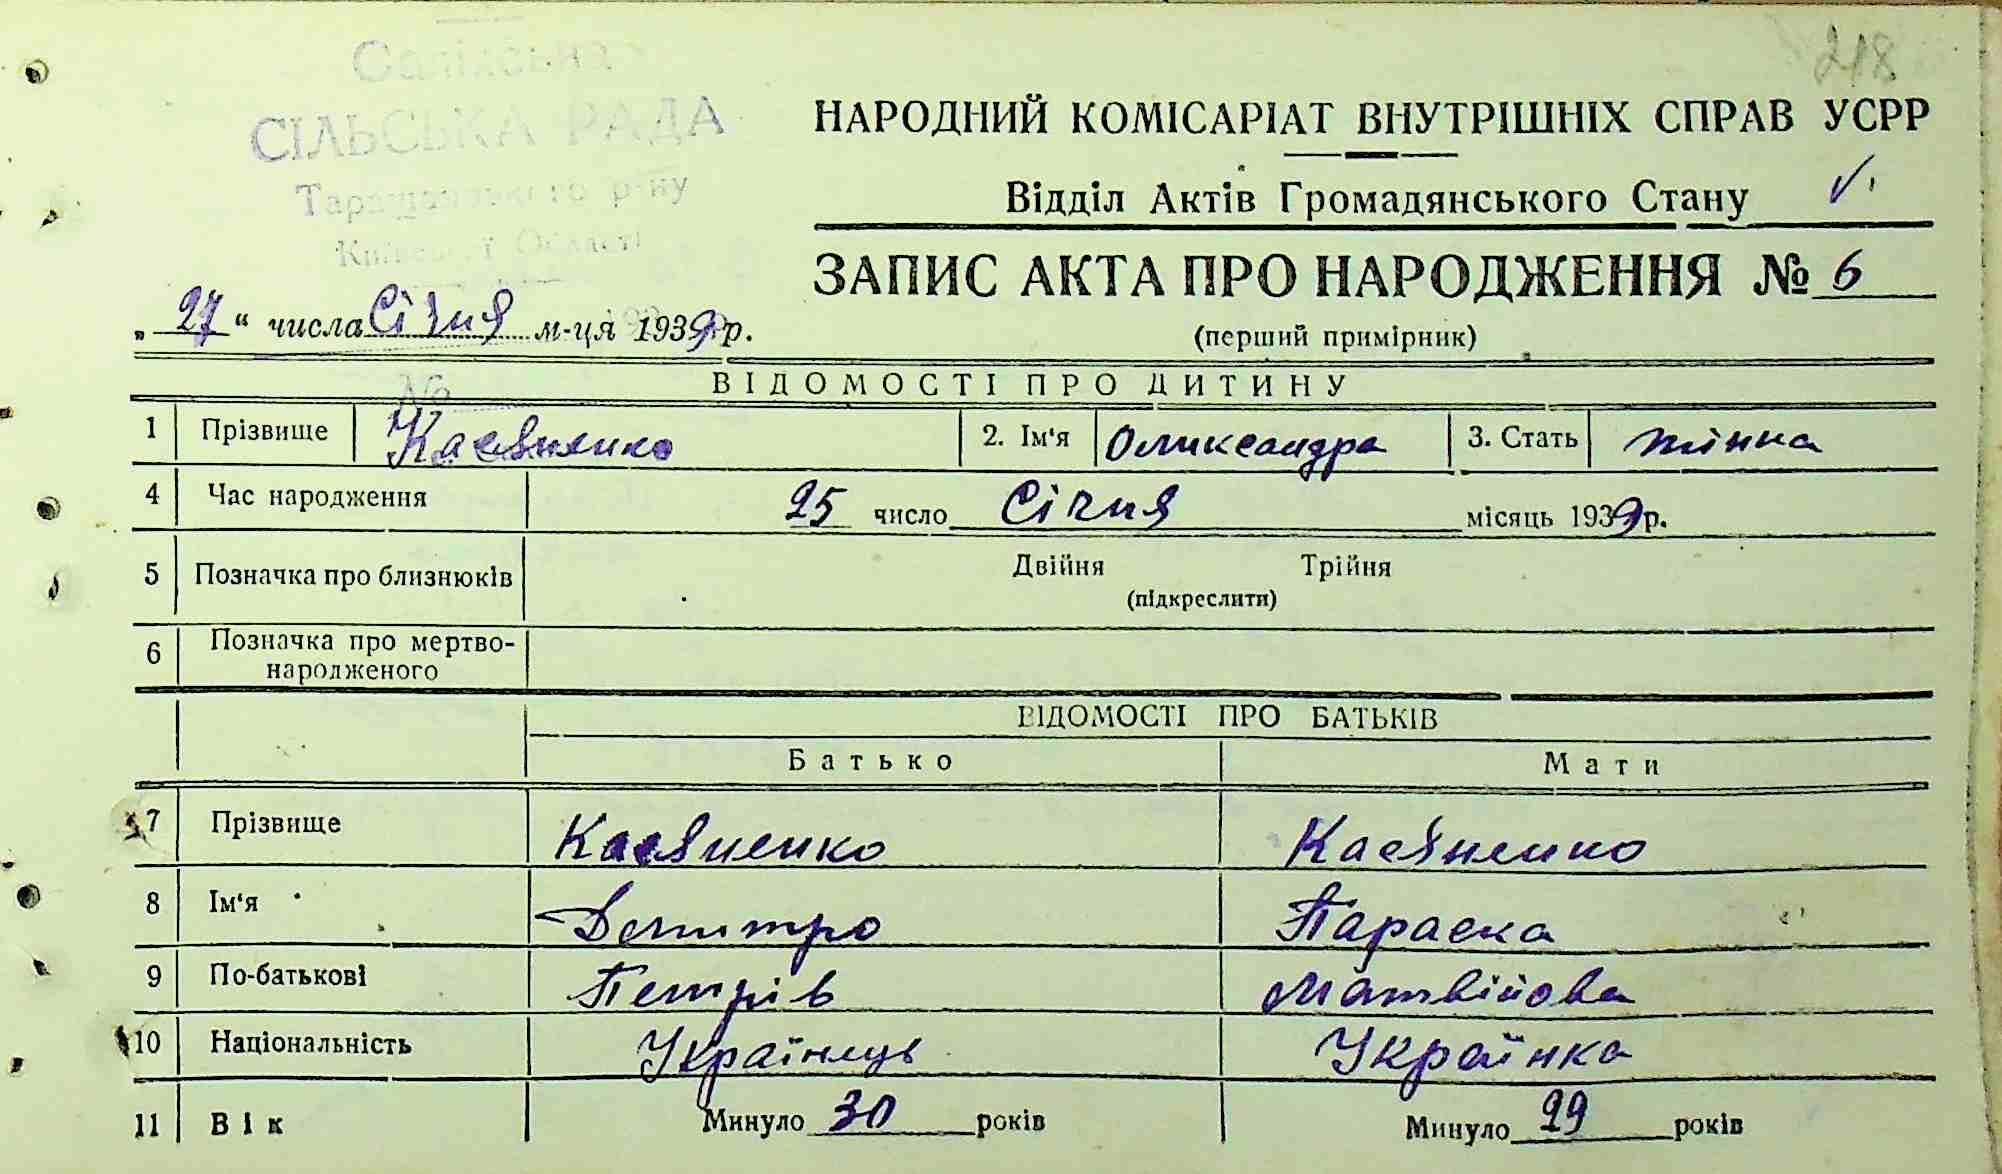 218
Саліхська
СІЛЬСЬКА РАДА
Таращанського р-ну
Київської Області
НАРОДНИЙ КОМІСАРІАТ ВНУТРІШНІХ СПРАВ УСРР
Відділ Актів Громадянського Стану
ЗАПИС АКТА ПРО НАРОДЖЕННЯ № 6
„27“ числа Січня м-ця 1939 р.
(перший примірник)
№
ВІДОМОСТІ ПРО ДИТИНУ
1 Прізвище Касяненко 2. Ім‘я Олександра 3. Стать жінка
4 Час народження 25 число Січня місяць 1939 р.
5 Позначка про близнюків Двійня Трійня
(підкреслити)
6 Позначка про мертво-
народженого
ВІДОМОСТІ ПРО БАТЬКІВ
Батько Мати
7 Прізвище Касяненко Касяненко
8 Ім‘я Дмитро Параска
9 По-батькові Петрів Матвійова
10 Національність Українець Українка
11 Вік Минуло 30 років Минуло 29 років